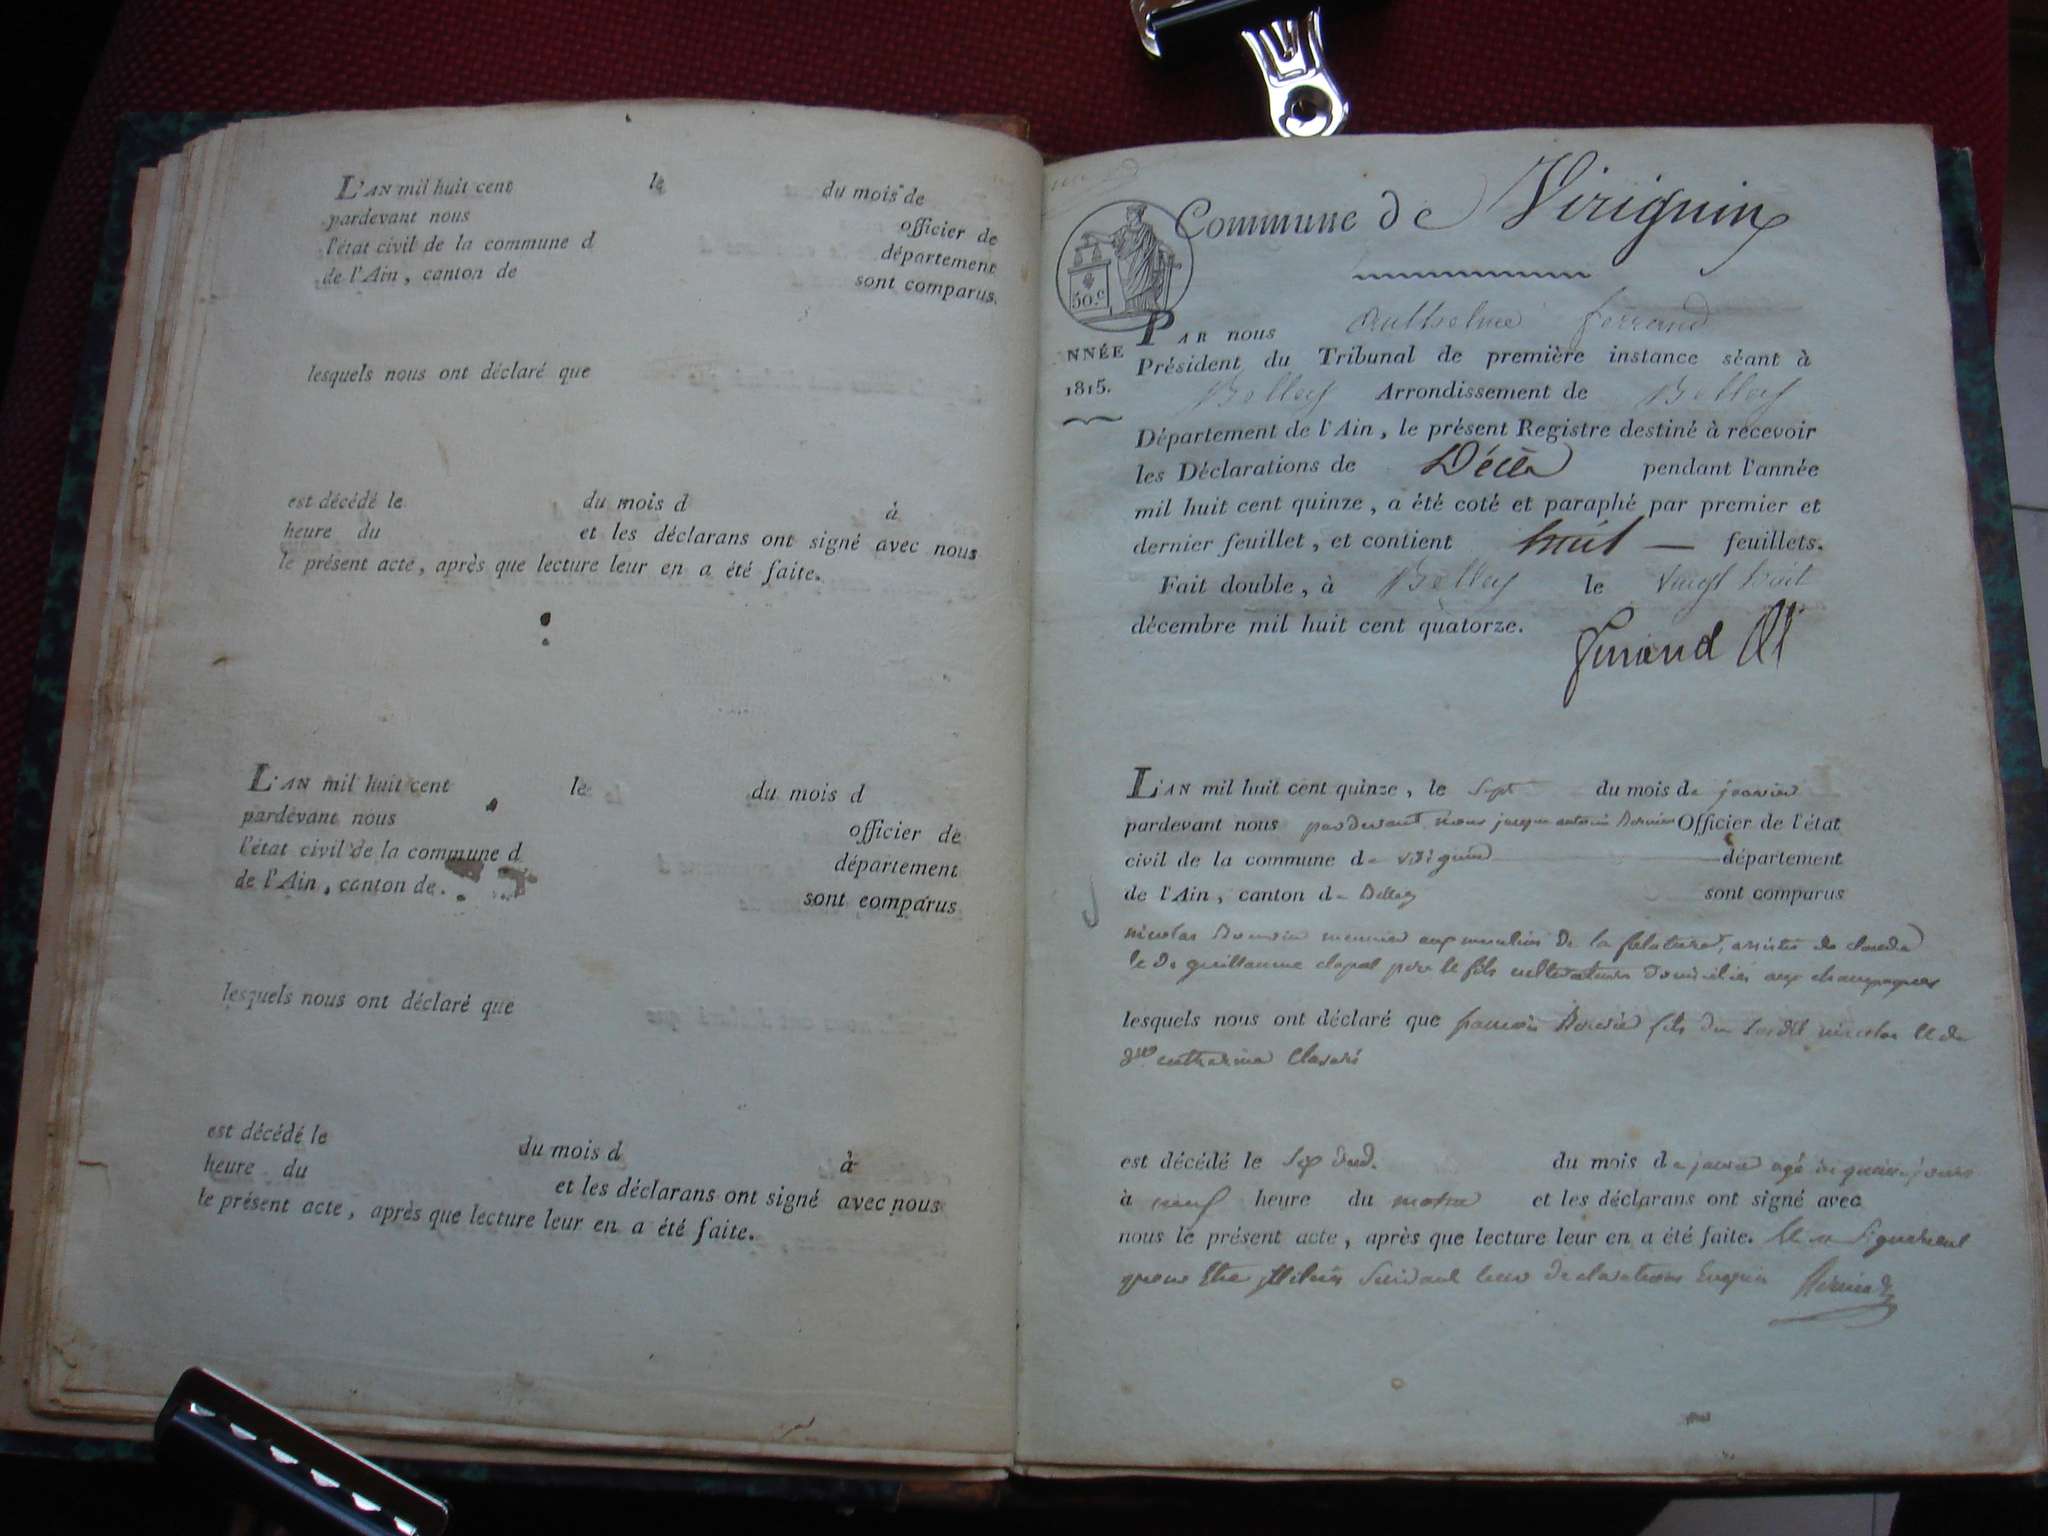 L'AN mil huit cent le du mois de
pardevant nous officier de
l'état civil de la commune d département
de l'Ain, canton de sont comparus.
lesquels nous ont déclaré que
est décédé le du mois d à
heure du et les déclarans ont signé avec nous
le présent acte, après que lecture leur en a été faite.
L'AN mil huit cent le du mois d
pardevant nous officier de
l'état civil de la commune d département
de l'Ain, canton de. sont comparus
lesquels nous ont déclaré que
est décédé le du mois d à
heure du et les déclarans ont signé avec nous
le présent acte, après que lecture leur en a été faite.
Commune de Virignin
50.c
PAR nous Anthelme Ferrand
NNÉE
1815.
Président du Tribunal de première instance séant à
Belley Arrondissement de Belley
Département de l'Ain, le présent Registre destiné à recevoir
les Déclarations de Décès pendant l'année
mil huit cent quinze, a été coté et paraphé par premier et
dernier feuillet, et contient huit — feuillets.
Fait double, à Belley le vingt huit
décembre mil huit cent quatorze.
Ferrand
L'AN mil huit cent quinze, le sept du mois de janvier
pardevant nous pardevant nous antoine Officier de l'état
civil de la commune de virignin département
de l'Ain, canton de Belley sont comparus
nicolas meunier aux moulins de la assistés de claude
le de guillaume clapat pere le fils cultivateurs domiciliés aux champagnes
lesquels nous ont déclaré que francois fils du susdit nicolas et de
catherine
est décédé le six du mois de janvier agé de quinze jours
à neuf heure du matin et les déclarans ont signé avec
nous le présent acte, après que lecture leur en a été faite.
pour suivant leur declarations